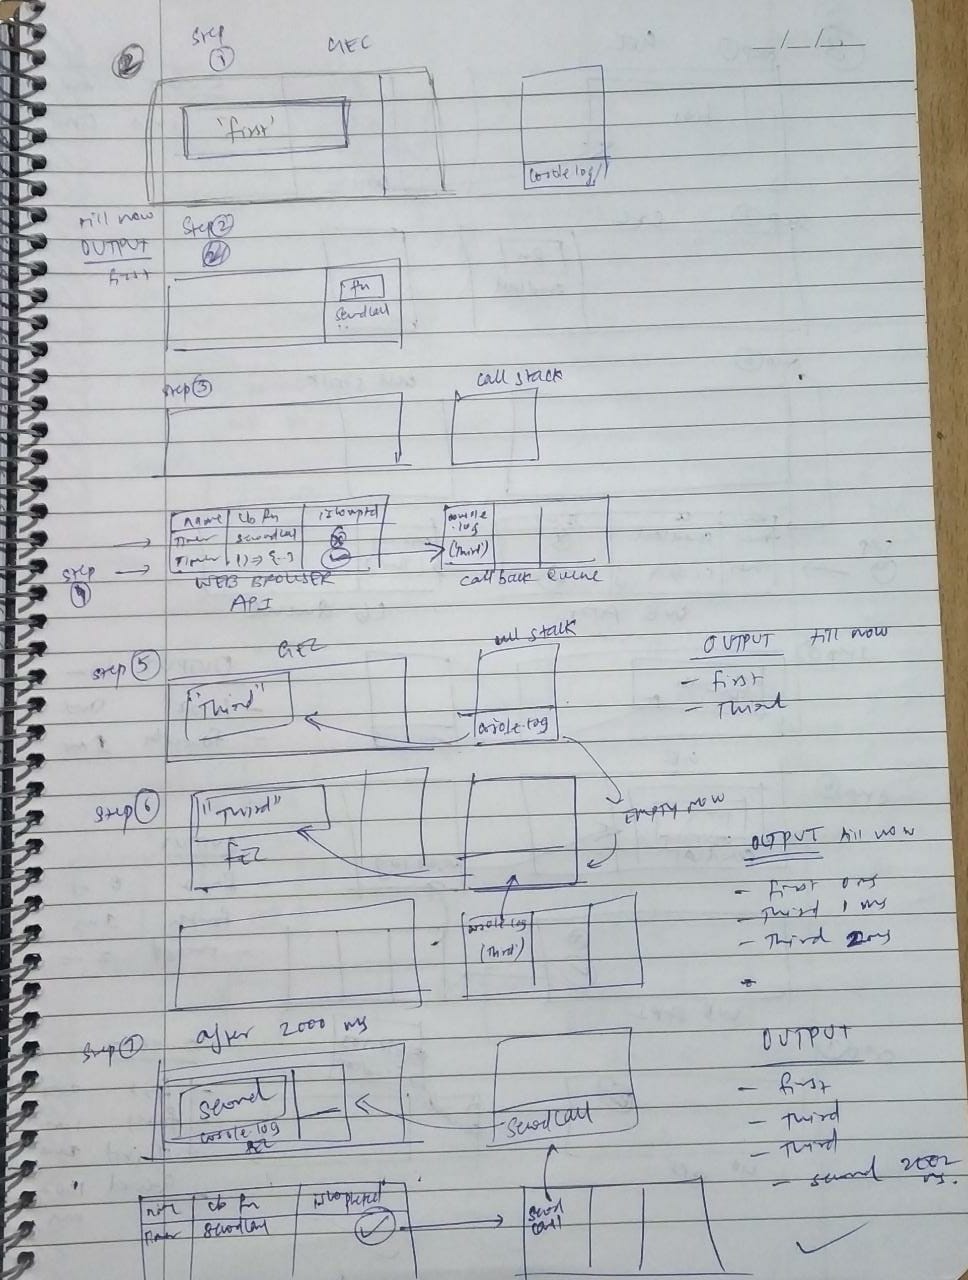 Step
①
GEC
_/_/_
'first'
console log()
till now
OUTPUT
first
Step ②
fn
Secondcall
Step ③
call stack
name cb fn iscompleted
Timer secondcall
Timer () => {--}
console
.log
(third)
Step
④
WEB BROWSER
API
callback queue
Step ⑤
call stack
"Third"
console.log
OUTPUT till now
- first
- Third
Step ⑥
"Third"
FEZ
Empty now
OUTPUT till now
- first 0ms
- third 1ms
- Third 2ms
-
console log
(third)
Step ⑦
after 2000 ms
Second
console log
Secondcall
OUTPUT
- first
- third
- third
- second 2002
ms.
name cb fn iscompleted
Timer secondcall
second
call